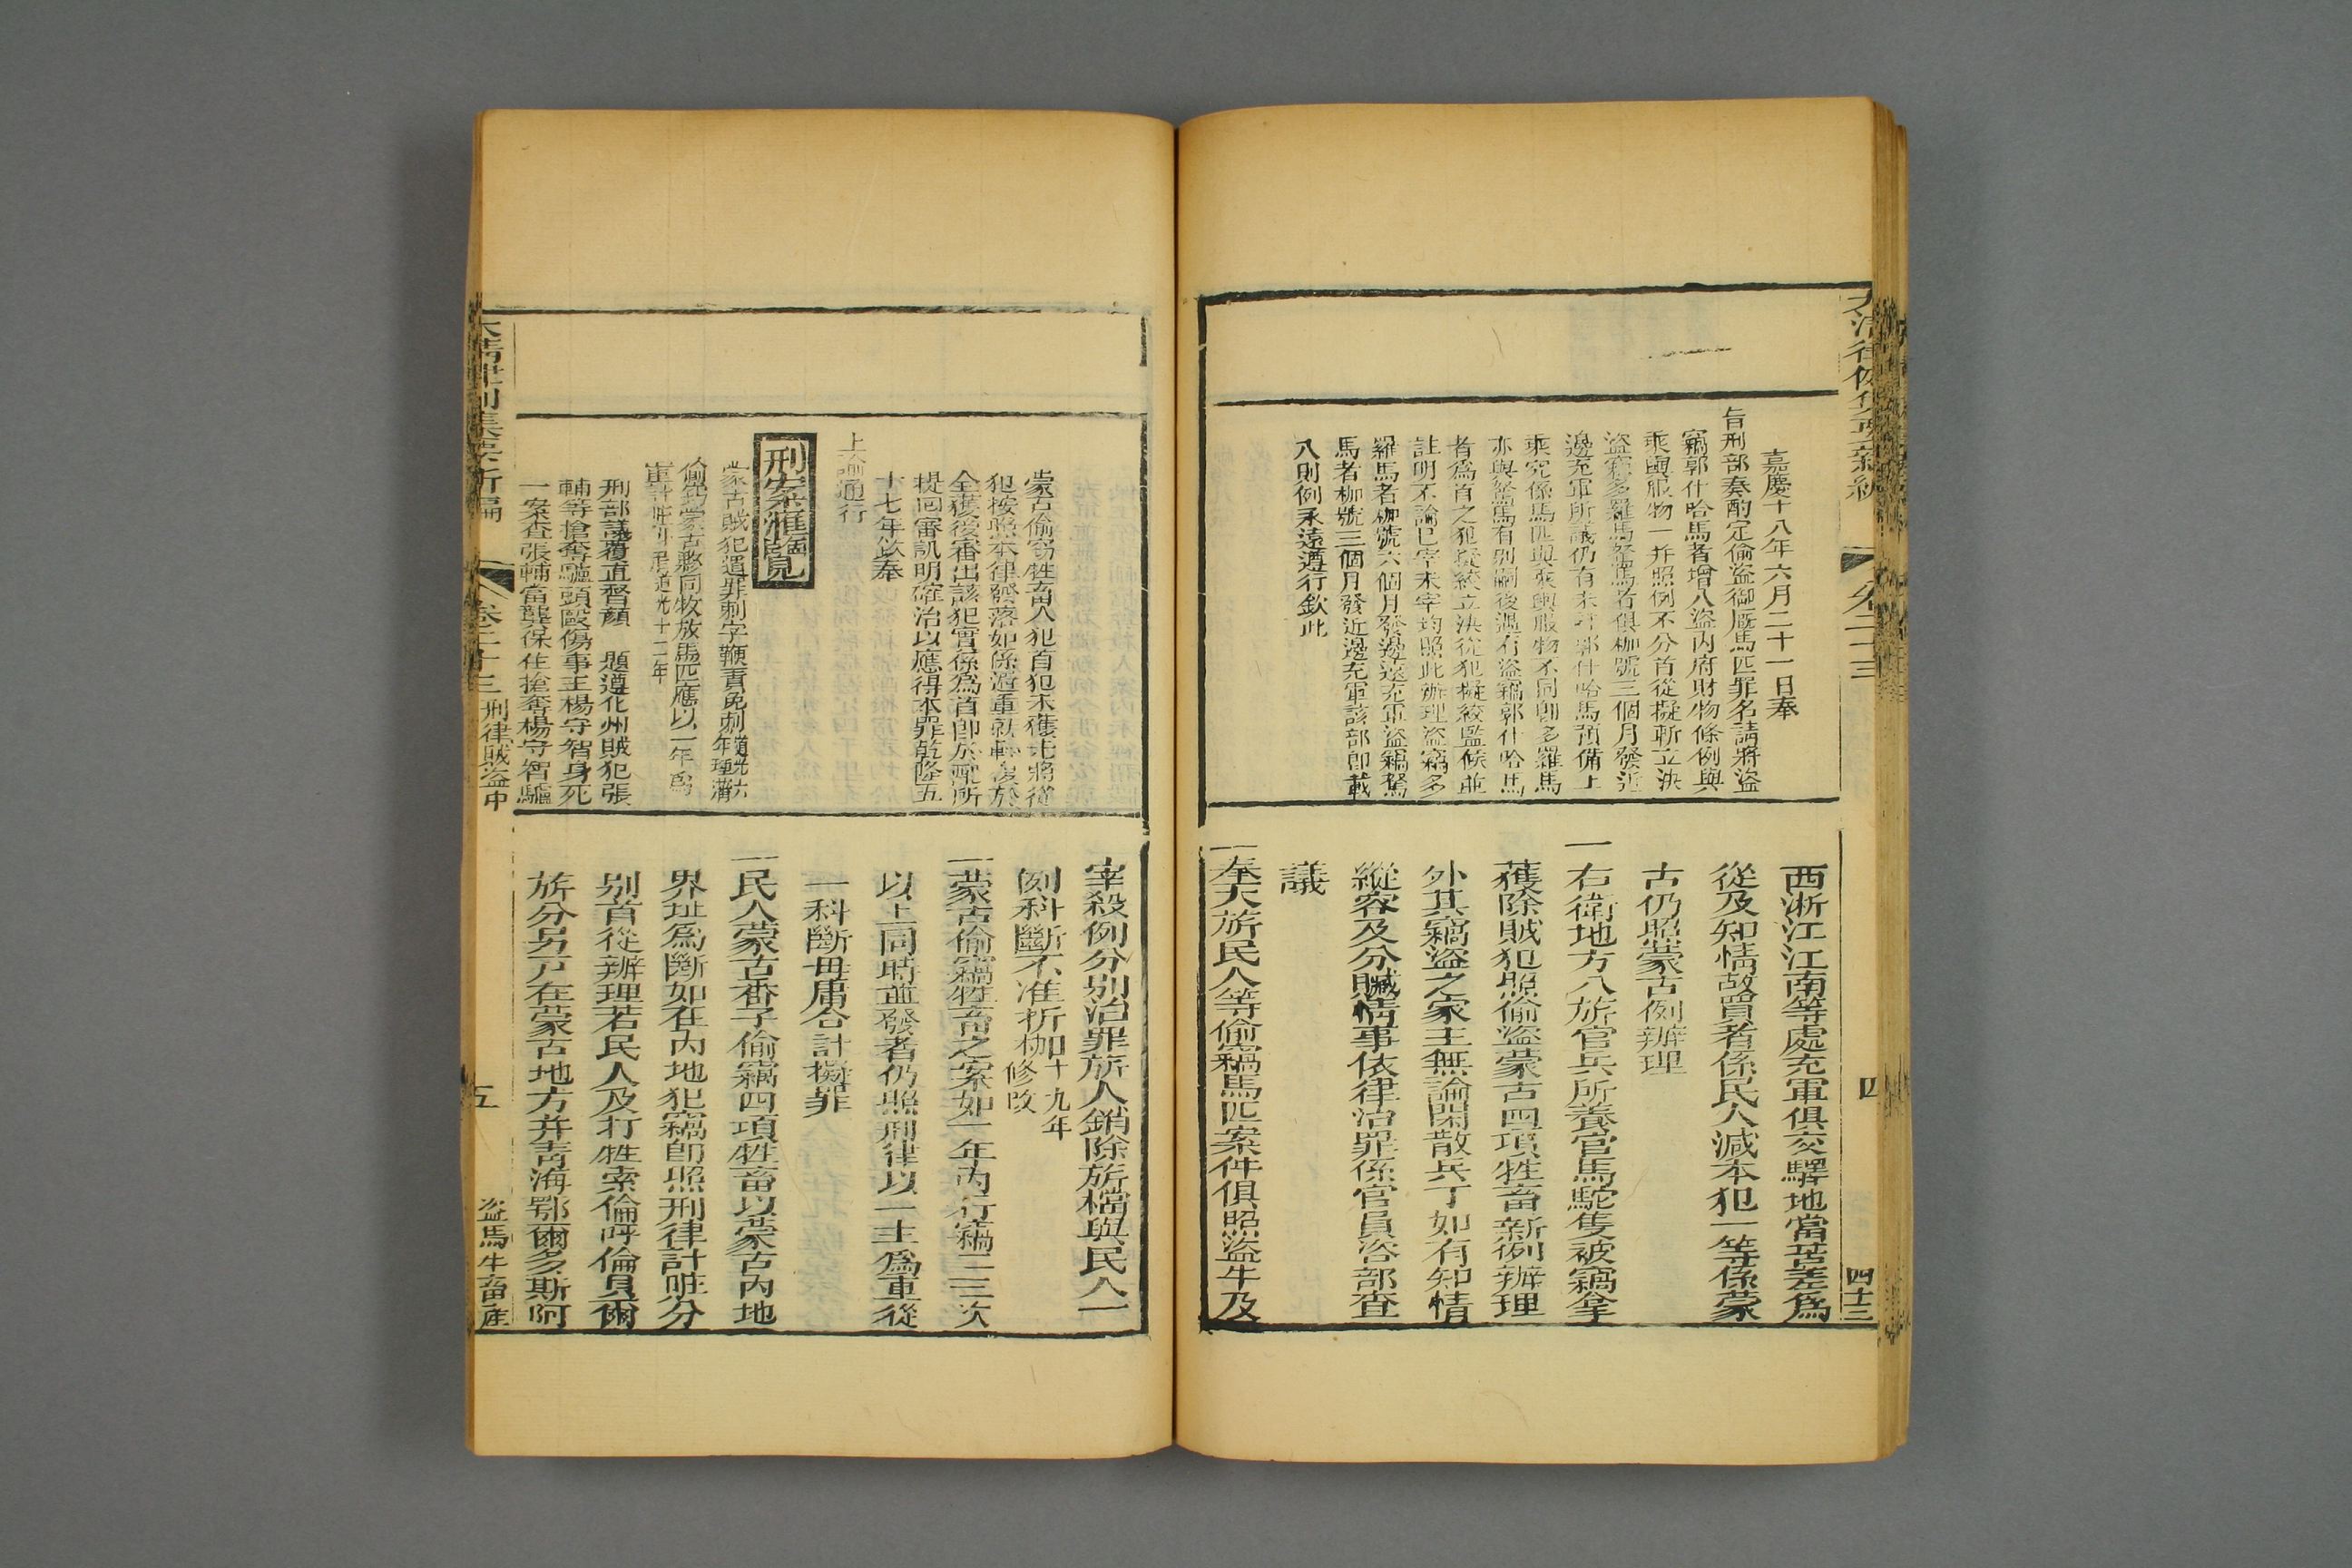 嘉慶十八年六月二十一日奉
旨刑部奏酌定偷盜御廄馬匹罪名請將盜
竊郭什哈馬者增入盜內府財物條例與
乘輿服物一并照例不分首從擬斬立決
盜竊多羅馬駑馬者俱枷號三個月發近
邊充軍所議仍有未協郭什哈馬預備上
乘究係馬匹與乘輿服物不同卽多羅馬
亦與駑馬有别嗣後遇有盜竊郭什哈馬
者為首之犯擬絞立決從犯擬絞監候並
註明不論已宰未宰均照此辦理盜竊多
羅馬者枷號六個月發邊遠充軍盜竊駑
馬者枷號三個月發近邊充軍該部卽載
入則例永遠遵行欽此
西浙江江南等處充軍俱交驛地當苦差爲
從及知情故買者係民人減本犯一等係蒙
古仍照蒙古例辦理
一右衛地方八旂官兵所養官馬駝隻被竊拿
獲除賊犯照偷盜蒙古四項牲畜新例辦理
外其竊盜之家主無論閑散兵丁如有知情
縱容及分贓情事依律治罪係官員咨部查
議
一奉天旂民人等偷竊馬匹案件俱照盜牛及
卷二十三
四
四十三
蒙古偷竊牲畜人犯首犯未獲先將從
犯按照本律發落如係避重就輕後於
全獲後審出該犯實係為首卽於配所
提回審訊明確治以應得本罪乾隆五
十七年欽奉
上諭通行
刑案滙覽
蒙古賊犯遣罪刺字鞭責免刺道光六年理藩
偷竊蒙古夥同牧放馬匹應以一年為
重計賍科罪道光十二年
刑部議覆直督顏 題遵化州賊犯張
輔等搶奪驢頭毆傷事主楊守智身死
一案查張輔富龔保住搶奪楊守智驢
宰殺例分别治罪旂人銷除旂檔與民人一
例科斷不准折枷十九年修改
一蒙古偷竊牲畜之案如一年內行竊二三次
以上同時並發者仍照刑律以一主爲重從
一科斷毋庸合計擬罪
一民人蒙古番子偷竊四項牲畜以蒙古內地
界址爲斷如在內地犯竊卽照刑律計賍分
别首從辦理若民人及打牲索倫呼倫貝爾
旂分另戶在蒙古地方并青海鄂爾多斯阿
大清律例集要新編
卷二十三 刑律賊盜中
五
盜馬牛畜產